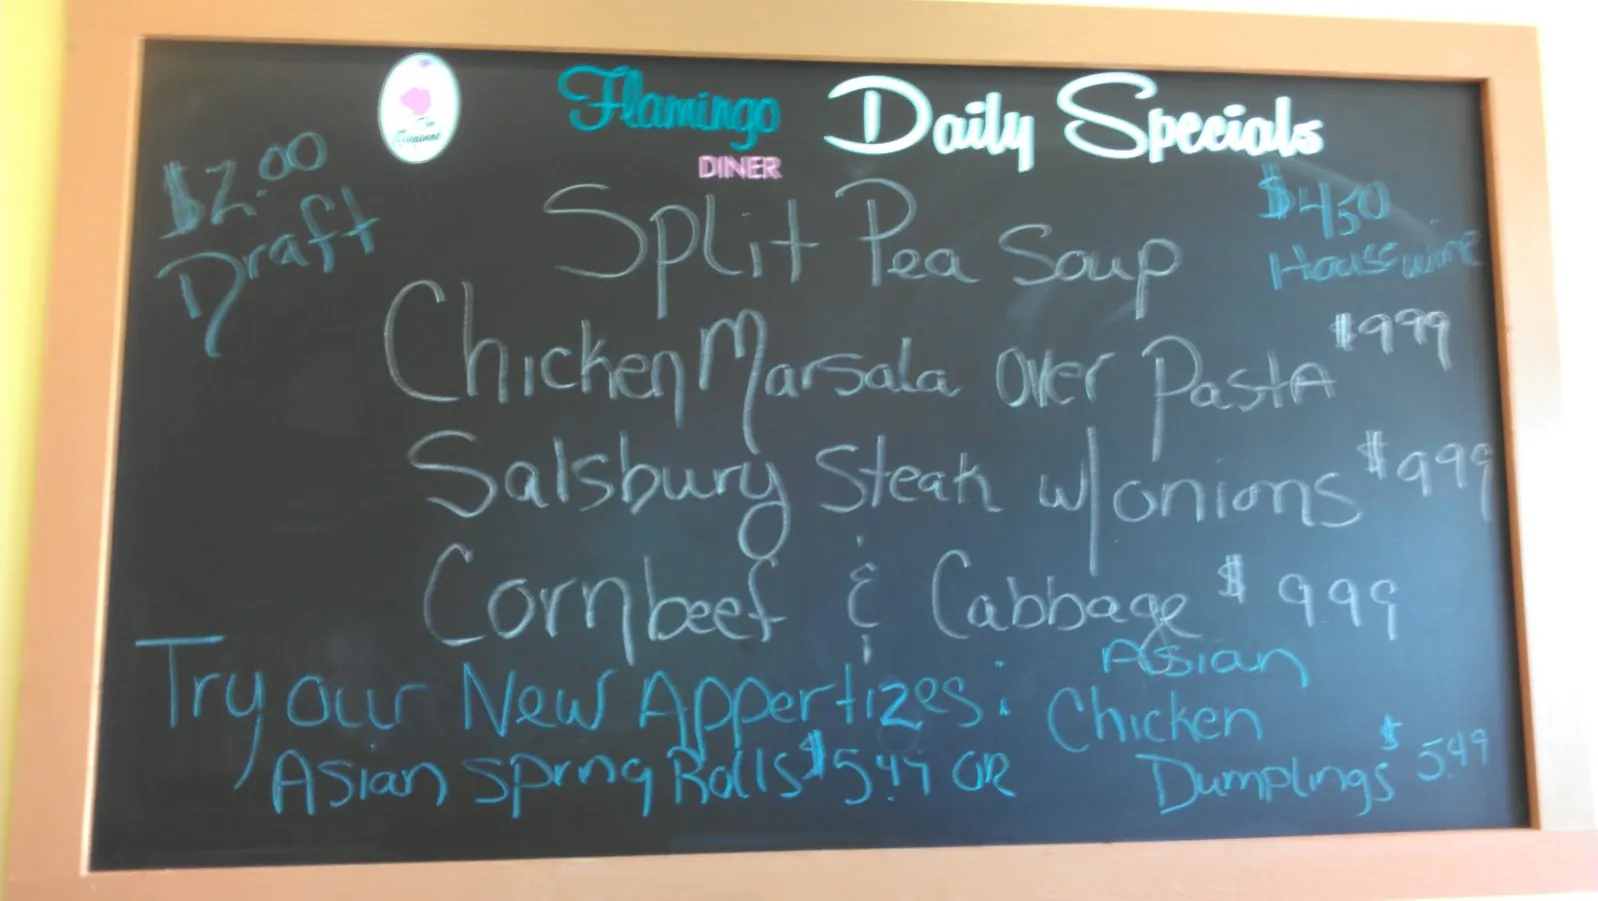 Flamingo Daily Specials
DINER
$2.00
Draft
Split Pea Soup
$4.50
House wine
Chicken Marsala over Pasta $9.99
Salsbury Steak w/onions $9.99
Cornbeef & Cabbage $9.99
Try our New Appertizes:
Asian Spring Rolls $5.49 OR
Asian
Chicken
Dumplings $5.49